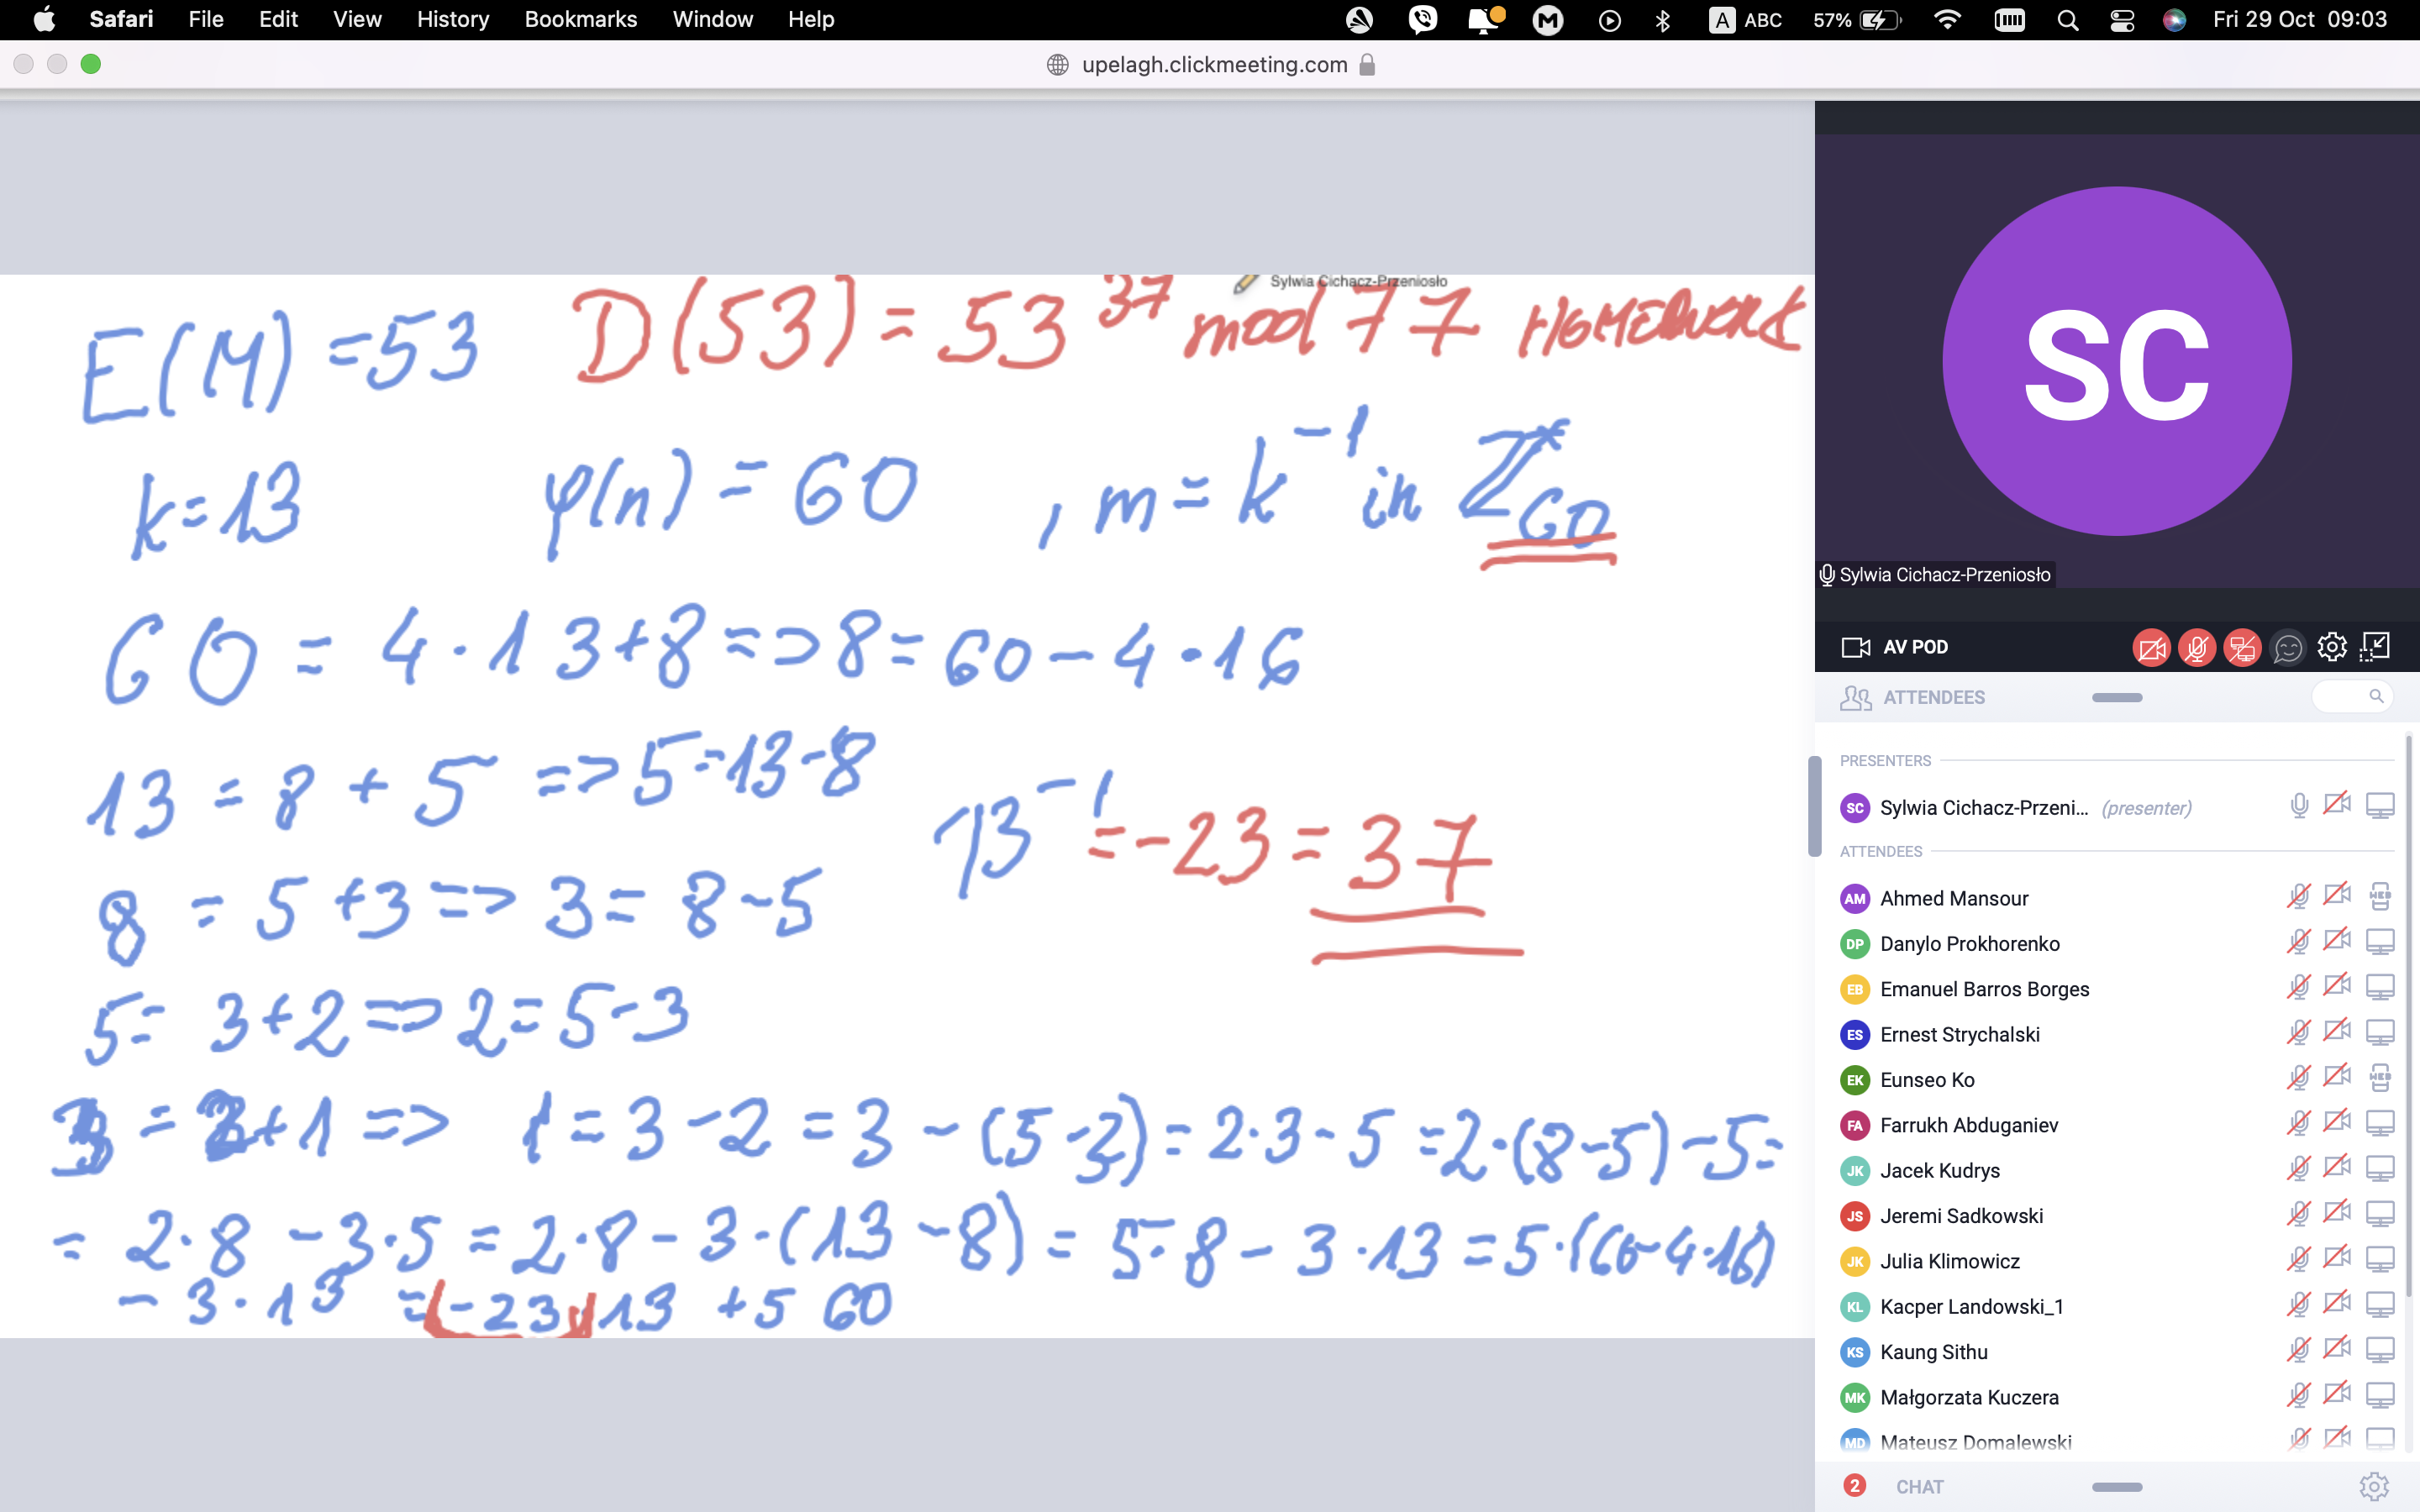 Safari File Edit View History Bookmarks Window Help A ABC 57% Fri 29 Oct 09:03
upelagh.clickmeeting.com
Sylwia Cichacz-Przeniosło
E(M) =53 D(53) = 53^37 mod 77 HOMEWORK
k=13 φ(n) = 60 , m = k^-1 in Z*_60
60 = 4·13+8 => 8 = 60 - 4·16
13 = 8 + 5 => 5=13-8
13^-1 = -23 = 37
8 = 5+3 => 3 = 8-5
5= 3+2 => 2=5-3
3 = 2+1 => 1 = 3-2 = 3 - (5-3) = 2·3-5 =2·(8-5)-5=
= 2·8 -3·5 = 2·8 - 3·(13-8) = 5·8 - 3·13 = 5·(60-4·16)
- 3·13 = (-23)13 +5 60
SC
Sylwia Cichacz-Przeniosło
AV POD
ATTENDEES
PRESENTERS
SC Sylwia Cichacz-Przeni... (presenter)
ATTENDEES
AM Ahmed Mansour
DP Danylo Prokhorenko
EB Emanuel Barros Borges
ES Ernest Strychalski
EK Eunseo Ko
FA Farrukh Abduganiev
JK Jacek Kudrys
JS Jeremi Sadkowski
JK Julia Klimowicz
KL Kacper Landowski_1
KS Kaung Sithu
MK Małgorzata Kuczera
MD Mateusz Domalewski
2 CHAT